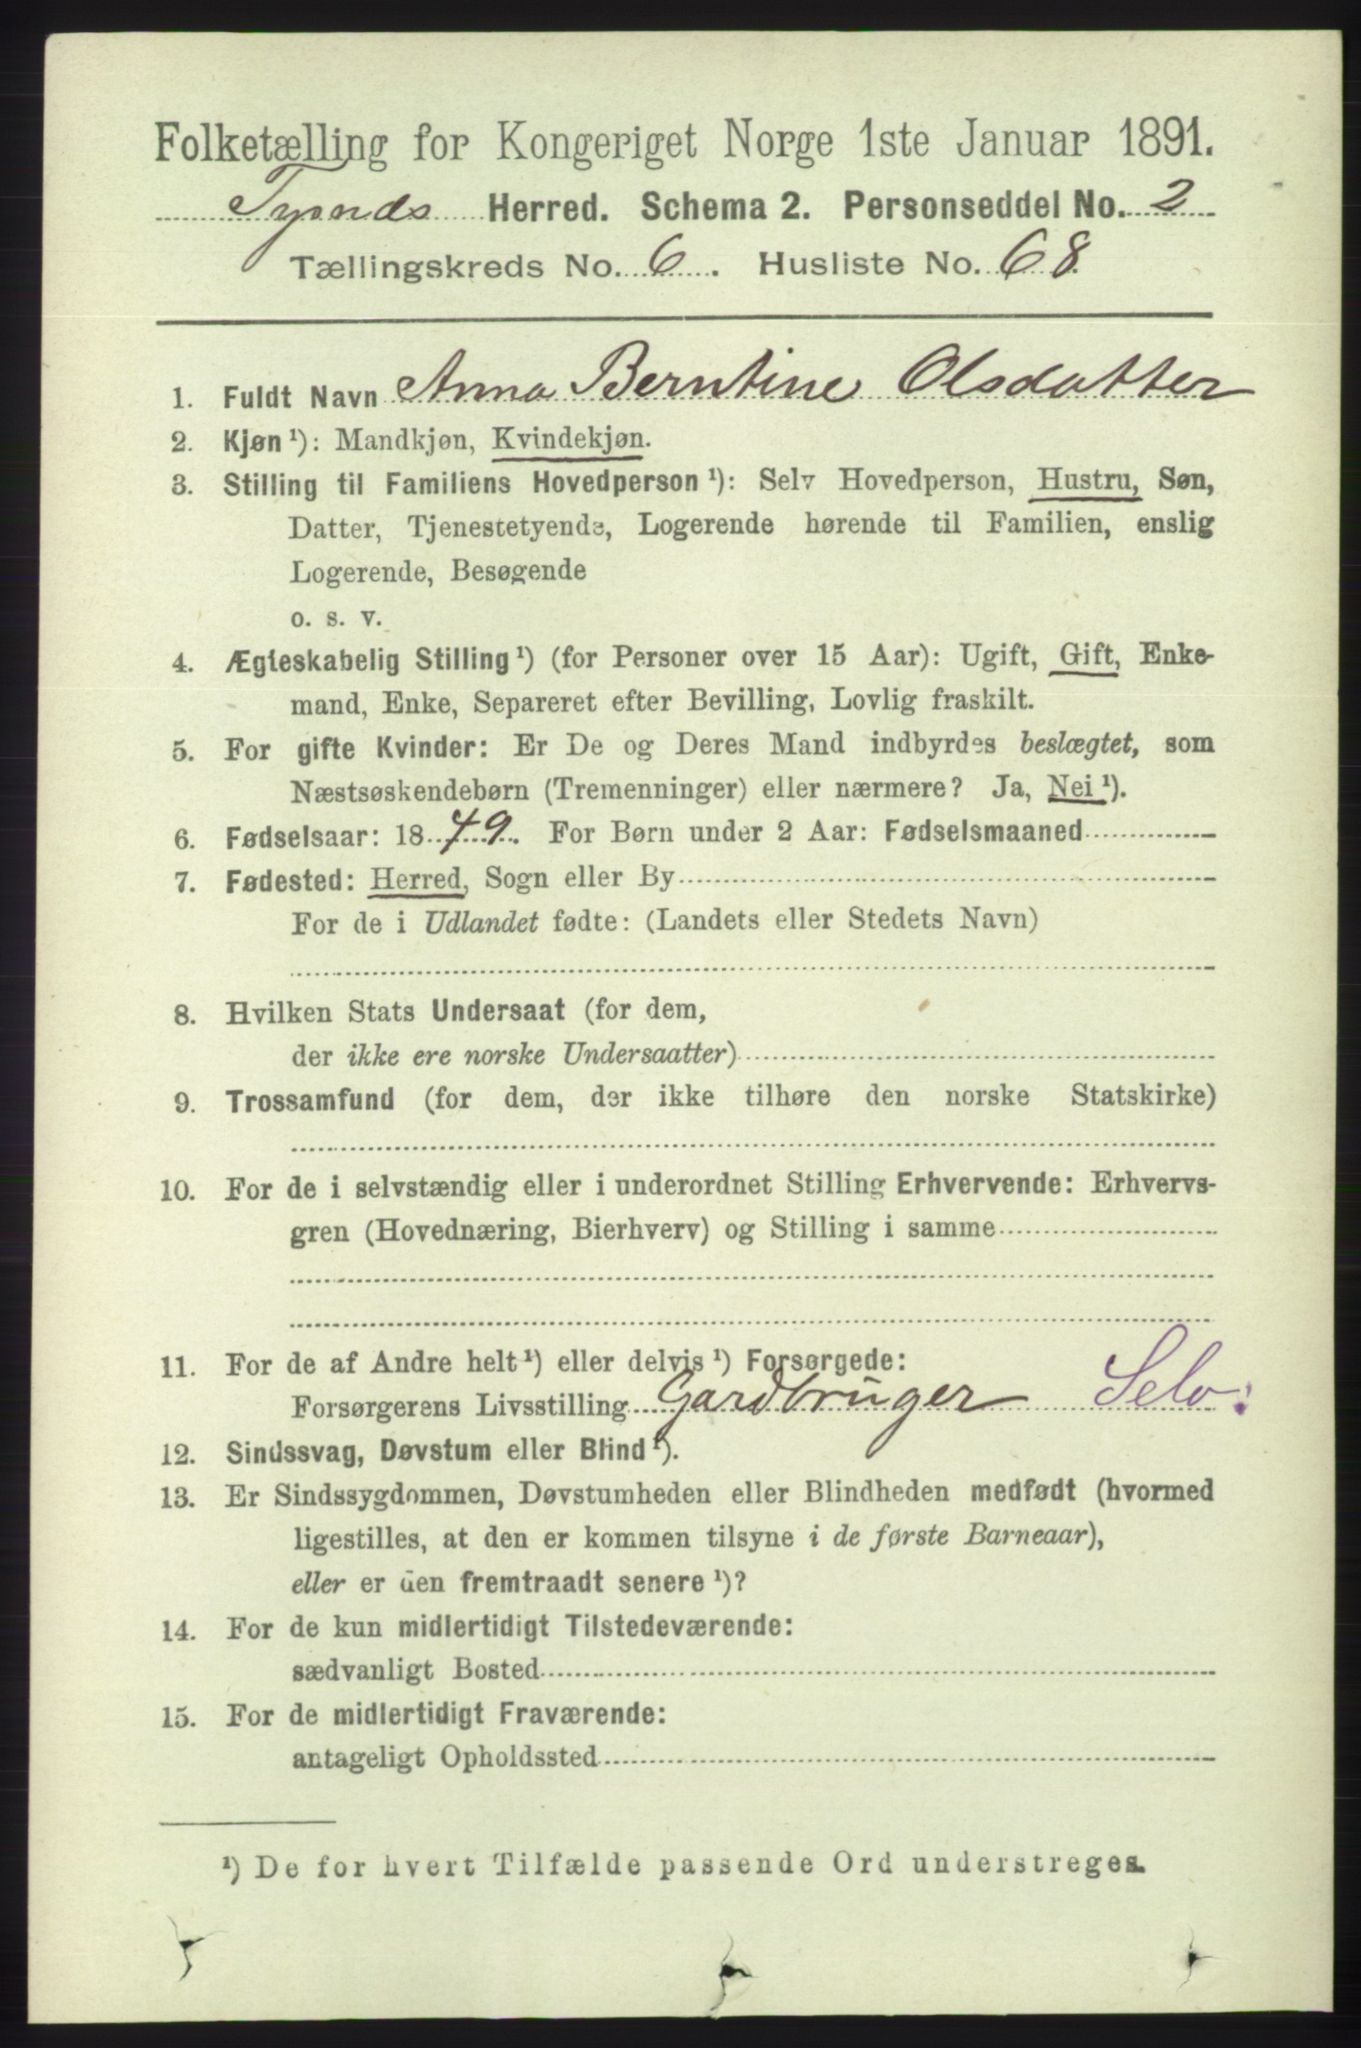 Folketælling for Kongeriget Norge 1ste Januar 1891.
Tysnds Herred. Schema 2. Personseddel No. 2
Tællingskreds No. 6. Husliste No. 68.
1. Fuldt Navn Anna Berntine Olsdatter
2. Kjøn ¹): Mandkjøn, Kvindekjøn.
3. Stilling til Familiens Hovedperson ¹): Selv Hovedperson, Hustru, Søn,
Datter, Tjenestetyende, Logerende hørende til Familien, enslig
Logerende, Besøgende
o. s. v.
4. Ægteskabelig Stilling ¹) (for Personer over 15 Aar): Ugift, Gift, Enke-
mand, Enke, Separeret efter Bevilling, Lovlig fraskilt.
5. For gifte Kvinder: Er De og Deres Mand indbyrdes beslægtet, som
Næstsøskendebørn (Tremenninger) eller nærmere? Ja, Nei ¹).
6. Fødselsaar: 1849. For Børn under 2 Aar: Fødselsmaaned
7. Fødested: Herred, Sogn eller By
For de i Udlandet fødte: (Landets eller Stedets Navn)
8. Hvilken Stats Undersaat (for dem,
der ikke ere norske Undersaatter)
9. Trossamfund (for dem, der ikke tilhøre den norske Statskirke)
10. For de i selvstændig eller i underordnet Stilling Erhvervende: Erhvervs-
gren (Hovednæring, Bierhverv) og Stilling i samme
11. For de af Andre helt ¹) eller delvis ¹) Forsørgede:
Forsørgerens Livsstilling Gardbruger Selv.
12. Sindssvag, Døvstum eller Blind ¹).
13. Er Sindssygdommen, Døvstumheden eller Blindheden medfødt (hvormed
ligestilles, at den er kommen tilsyne i de første Barneaar),
eller er den fremtraadt senere ¹)?
14. For de kun midlertidigt Tilstedeværende:
sædvanligt Bosted
15. For de midlertidigt Fraværende:
antageligt Opholdssted
¹) De for hvert Tilfælde passende Ord understreges.